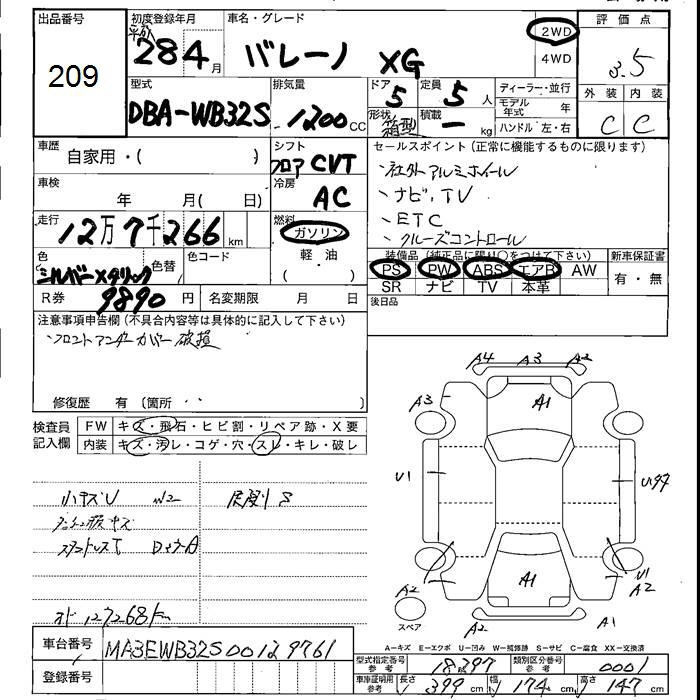 出品番号
209
初度登録年月
平成 28 4 月
車名・グレード
バレーノ XG
2WD
4WD
評価点
3.5
外装 内装
C C
型式
DBA-WB32S
排気量
1200 CC
ドア
5
定員
5 人
形状
箱型
積載
ー kg
ディーラー・並行
モデル年式 年
ハンドル 左・右
車歴
自家用・( )
シフト
フロア CVT
セールスポイント (正常に機能するものに限ります)
、社外アルミホイール
、ナビ、TV
、ETC
、クルーズコントロール
車検
年 月( 日)
冷房
AC
走行
12万7千266 km
燃料
ガソリン
軽・油
( )
色
シルバーメタリック
色替
色コード
装備品 (純正品に限り○をつけて下さい)
PS PW ABS エアB AW
SR ナビ TV 本革
新車保証書
有・無
R券 9890 円
名変期限 月 日
後日品
注意事項申告欄 (不具合内容等は具体的に記入して下さい)
、フロントアンダーカバー破損
修復歴 有 (箇所
検査員記入欄
FW キズ・飛石・ヒビ割・リペア跡・X要
内装 キズ・汚レ・コゲ・穴・スレ・キレ・破レ
A4 A3 A2
A3 A1
U1
A1
U1
A2
A2
スペア
A2 A1
小キズU
127268km
A=キズ E=エクボ U=凹み W=補修跡 S=サビ C=腐食 XX=交換済
車台番号
MA3EWB32S00129761
登録番号
型式指定番号 参考
18297
類別区分番号 参考
0001
車庫証明用 参考
長さ 399 cm
幅 174 cm
高さ 147 cm